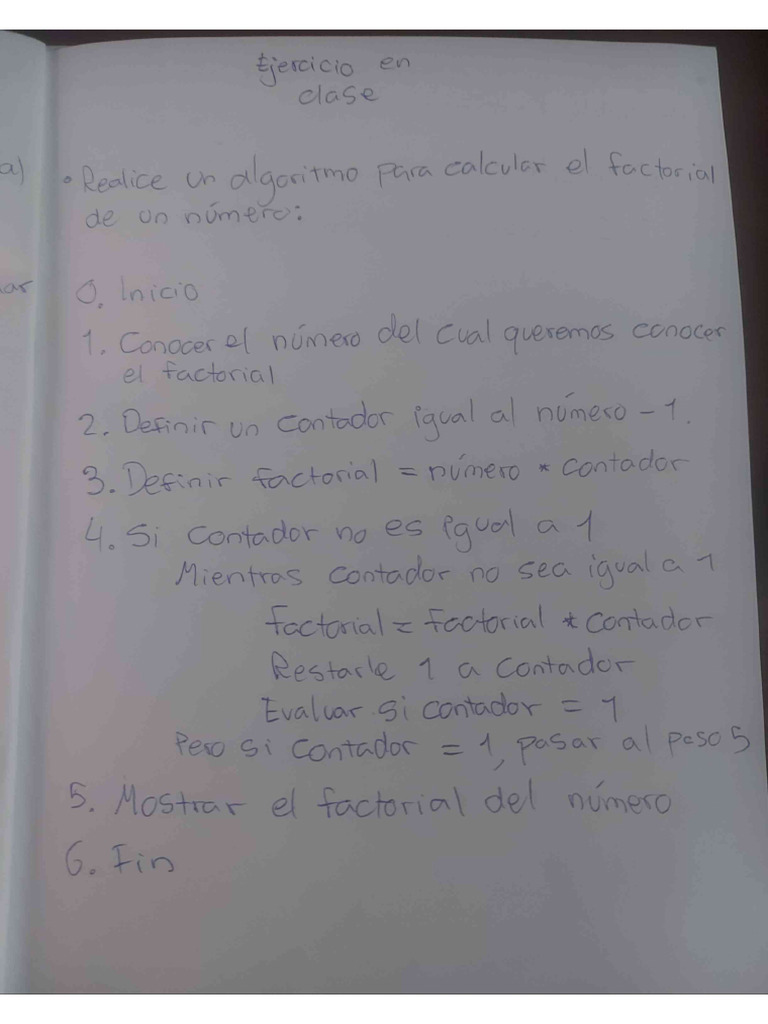 Ejercicio en
clase
a)
• Realice un algoritmo para calcular el factorial
de un número:
ar
0. Inicio
1. Conocer el número del cual queremos conocer
el factorial
2. Definir un contador igual al número - 1.
3. Definir factorial = número * contador
4. Si contador no es igual a 1
Mientras contador no sea igual a 1
factorial = factorial * contador
Restarle 1 a contador
Evaluar si contador = 1
Pero si contador = 1, pasar al paso 5
5. Mostrar el factorial del número
6. Fin